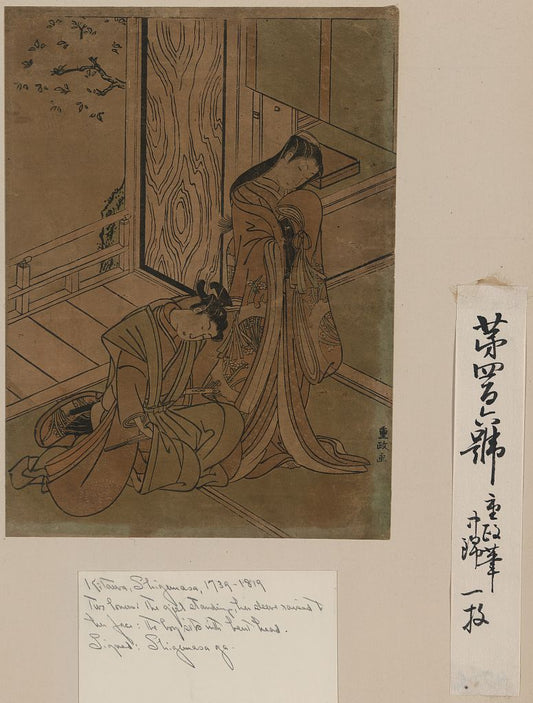 重政画
Kitawo, Shigemasa, 1739-1819
Two lovers: The girl standing, her sleeve raised to
her face: the boy sits with bent head.
Signed: Shigemasa ga.
第四百六號
重政筆
中錦
一枚